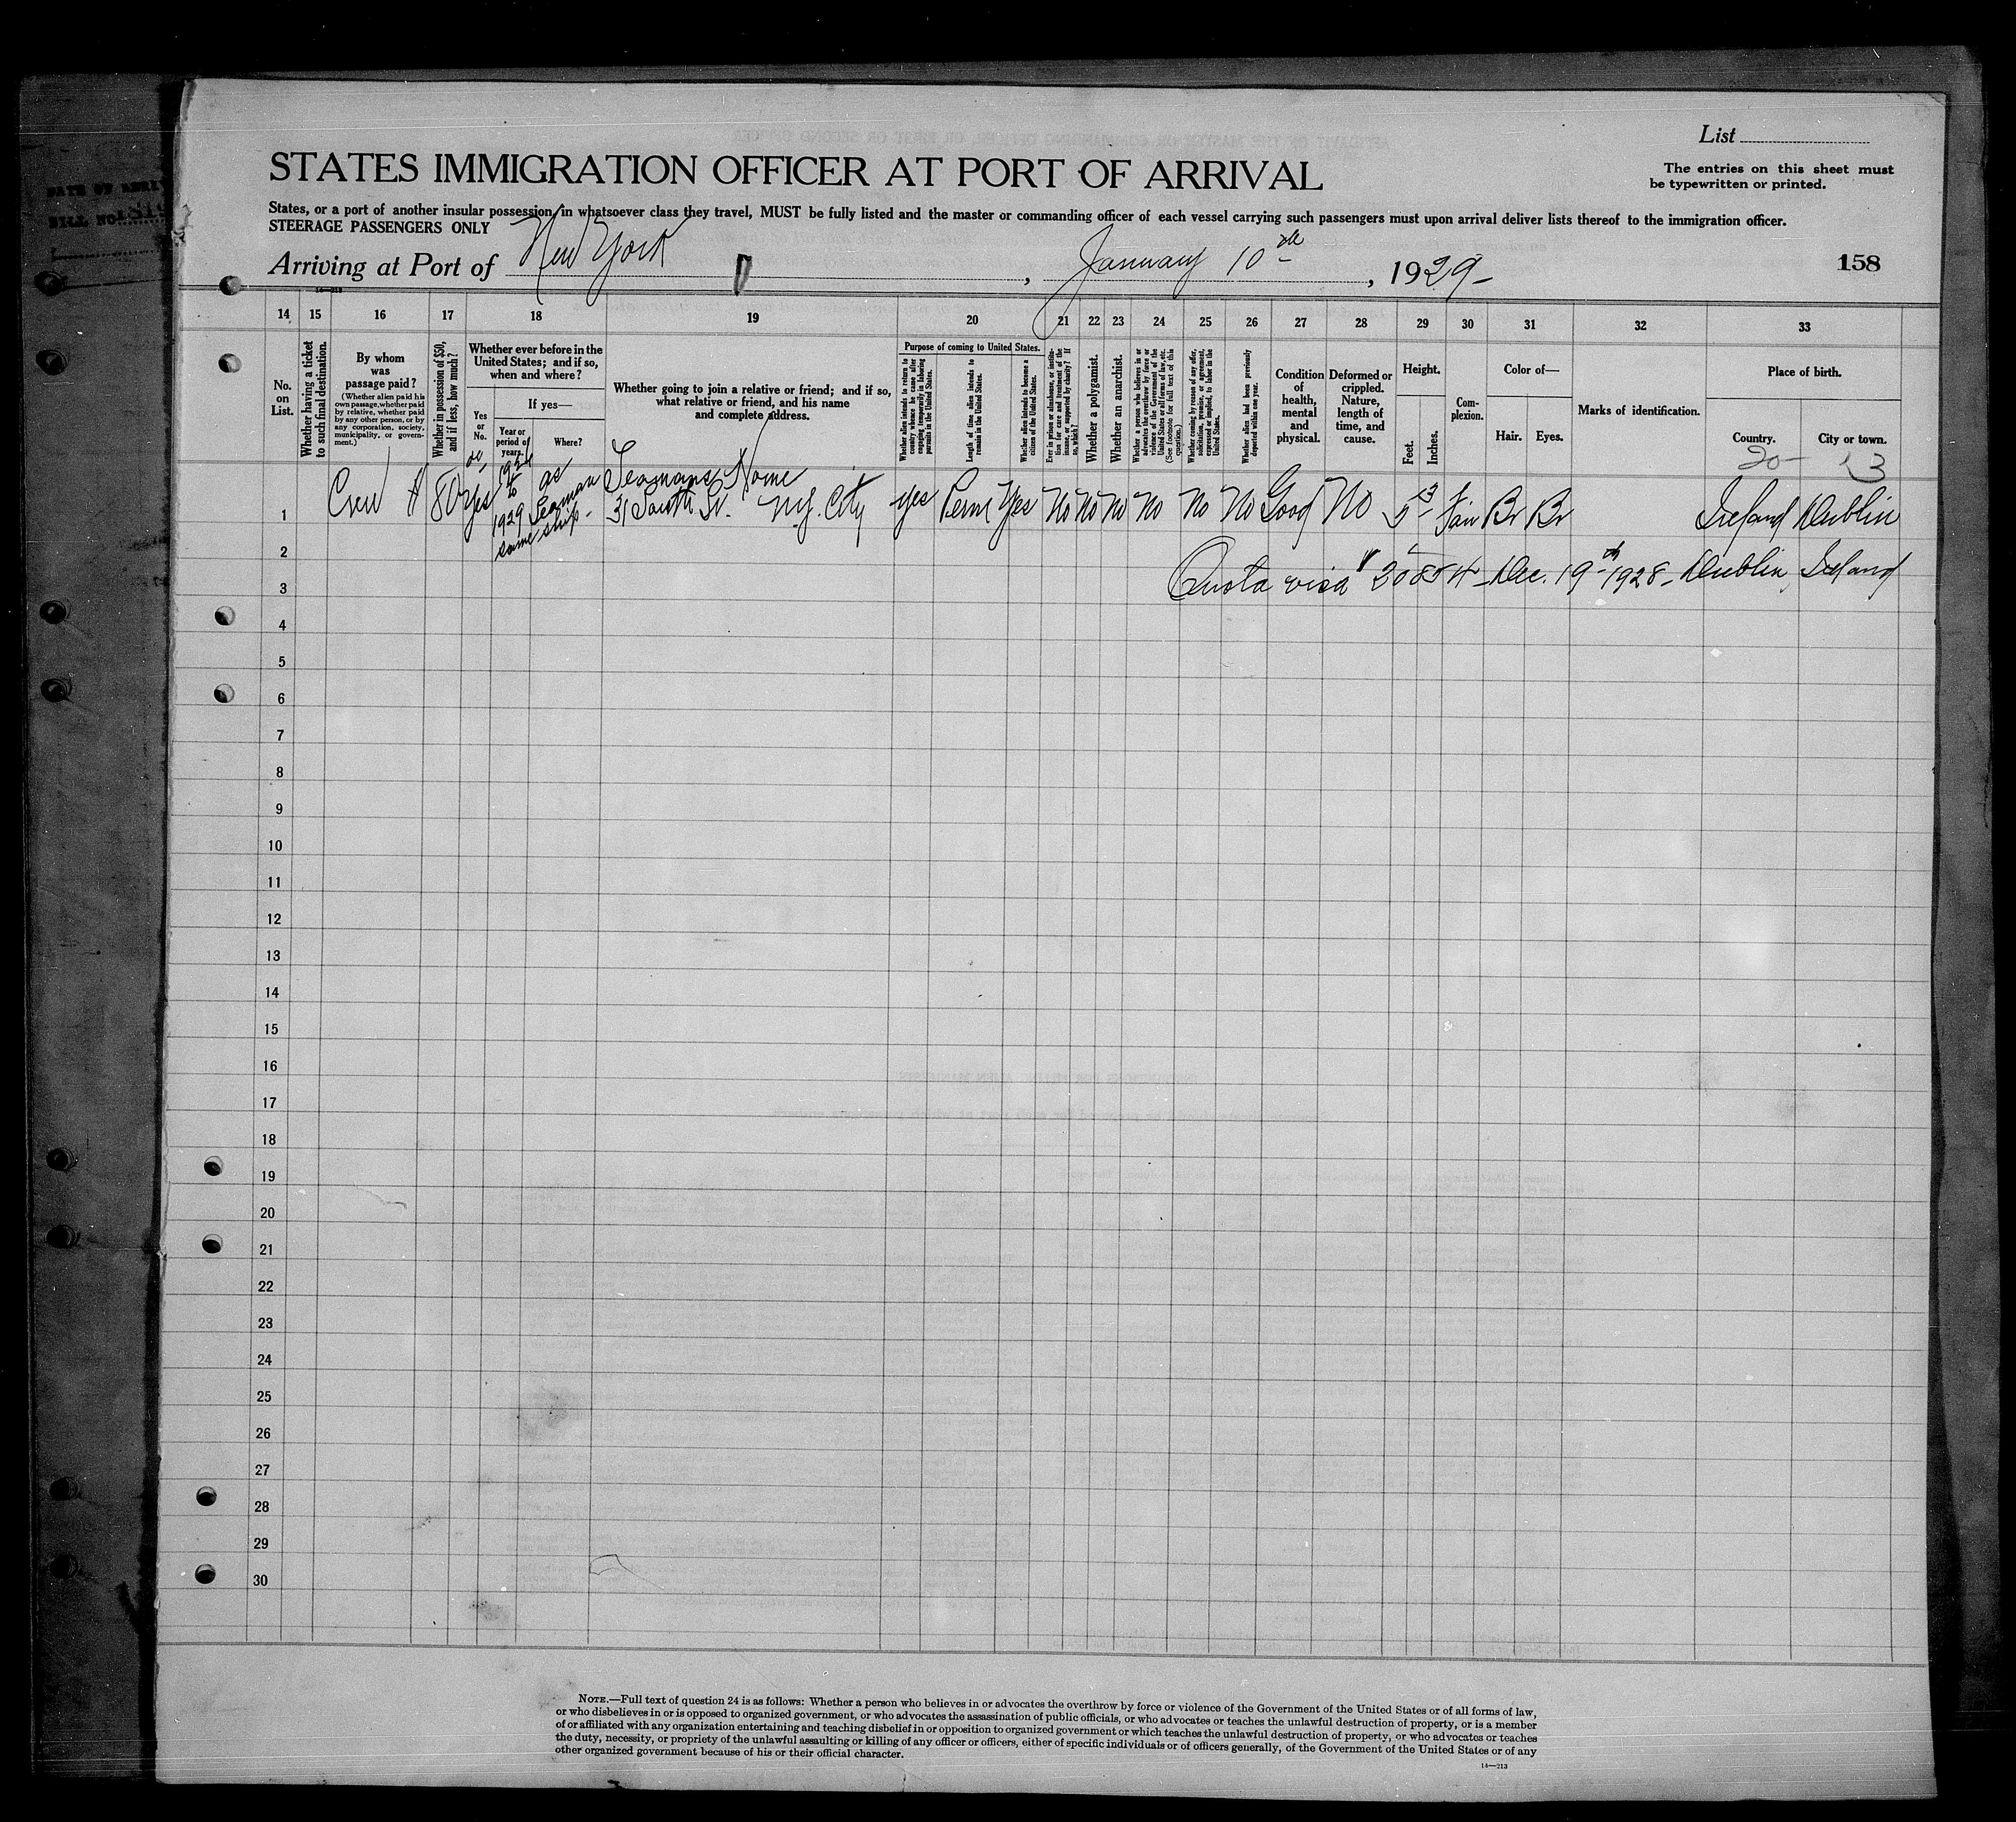 List
STATES IMMIGRATION OFFICER AT PORT OF ARRIVAL
The entries on this sheet must
be typewritten or printed.
States, or a port of another insular possession, in whatsoever class they travel, MUST be fully listed and the master or commanding officer of each vessel carrying such passengers must upon arrival deliver lists thereof to the immigration officer.
STEERAGE PASSENGERS ONLY
Arriving at Port of New York, January 10th, 1929-
158
14 15 16 17 18 19 20 21 22 23 24 25 26 27 28 29 30 31 32 33
No. on List.
Whether having a ticket to such final destination.
By whom was passage paid?
(Whether alien paid his own passage, whether paid by relative, whether paid by any other person, or by any corporation, society, municipality, or government.)
Whether in possession of $50, and if less, how much?
Whether ever before in the United States; and if so, when and where?
Yes or No.
If yes—
Year or period of years.
Where?
Whether going to join a relative or friend; and if so, what relative or friend, and his name and complete address.
Purpose of coming to United States.
Whether alien intends to return to country whence he came after engaging temporarily in laboring pursuits in the United States.
Length of time alien intends to remain in the United States.
Whether alien intends to become a citizen of the United States.
Ever in prison or almshouse, or institution for care and treatment of the insane, or supported by charity? If so, which?
Whether a polygamist.
Whether an anarchist.
Whether a person who believes in or advocates the overthrow by force or violence of the Government of the United States or all forms of law, etc. (See footnote for full text of this question.)
Whether coming by reason of any offer, solicitation, promise, or agreement, expressed or implied, to labor in the United States.
Whether alien had been previously deported within one year.
Condition of health, mental and physical.
Deformed or crippled. Nature, length of time, and cause.
Height.
Feet.
Inches.
Complexion.
Color of—
Hair.
Eyes.
Marks of identification.
Place of birth.
Country.
City or town.
20- 3
1 Crew 80 Yes 1924 to 1929 as Seaman same ship- Seamans Home 31 South St. N.Y. City yes Perm Yes No No No No No No Good No 5 3 Fair Br Br Ireland Dublin
2
Quota visa # 30854 - Dec. 19th 1928 - Dublin, Ireland
3
4
5
6
7
8
9
10
11
12
13
14
15
16
17
18
19
20
21
22
23
24
25
26
27
28
29
30
NOTE.—Full text of question 24 is as follows: Whether a person who believes in or advocates the overthrow by force or violence of the Government of the United States or of all forms of law,
or who disbelieves in or is opposed to organized government, or who advocates the assassination of public officials, or who advocates or teaches the unlawful destruction of property, or is a member
of or affiliated with any organization entertaining and teaching disbelief in or opposition to organized government or which teaches the unlawful destruction of property, or who advocates or teaches
the duty, necessity, or propriety of the unlawful assaulting or killing of any officer or officers, either of specific individuals or of officers generally, of the Government of the United States or of any
other organized government because of his or their official character.
14—213